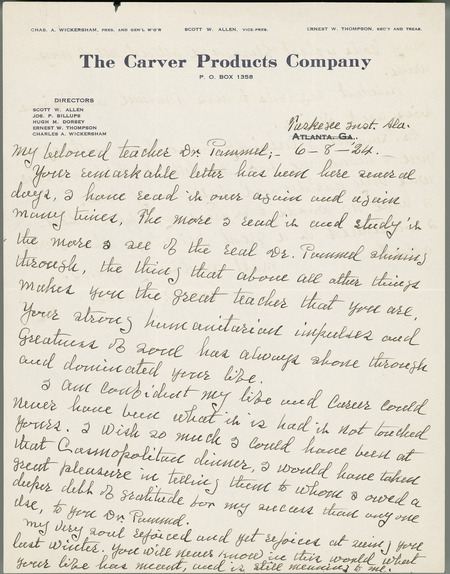 CHAS. A. WICKERSHAM, PRES. AND GEN'L M'G'R SCOTT W. ALLEN, VICE-PRES. ERNEST W. THOMPSON, SEC'Y AND TREAS.
The Carver Products Company
P. O. BOX 1358
DIRECTORS
SCOTT W. ALLEN
JOS. P. BILLUPS
HUGH M. DORSEY
ERNEST W. THOMPSON
CHARLES A. WICKERSHAM
Tuskegee Inst. Ala.
ATLANTA, GA.
6-8-24.
My beloved teacher Dr. Pammel;-
Your remarkable letter has been here several
days, I have read it over again and again
many times, The more I read it and study it
the more I see of the real Dr. Pammel shining
through, the thing that above all other things
makes you the great teacher that you are,
Your strong humanitarian impulses and
Greatness of soul has always shone through
and dominated your life.
I am confident my life and career could
never have been what it is had it not touched
yours. I wish so much I could have been at
that Cosmopolitan dinner, I would have taken
great pleasure in telling them to whom I owed a
deeper debt of gratitude for my success than any one
else, to you Dr. Pammel.
My very soul rejoiced and yet rejoices at seeing you
last winter. You will never know in this world what
your life has meant, and is still meaning to me.